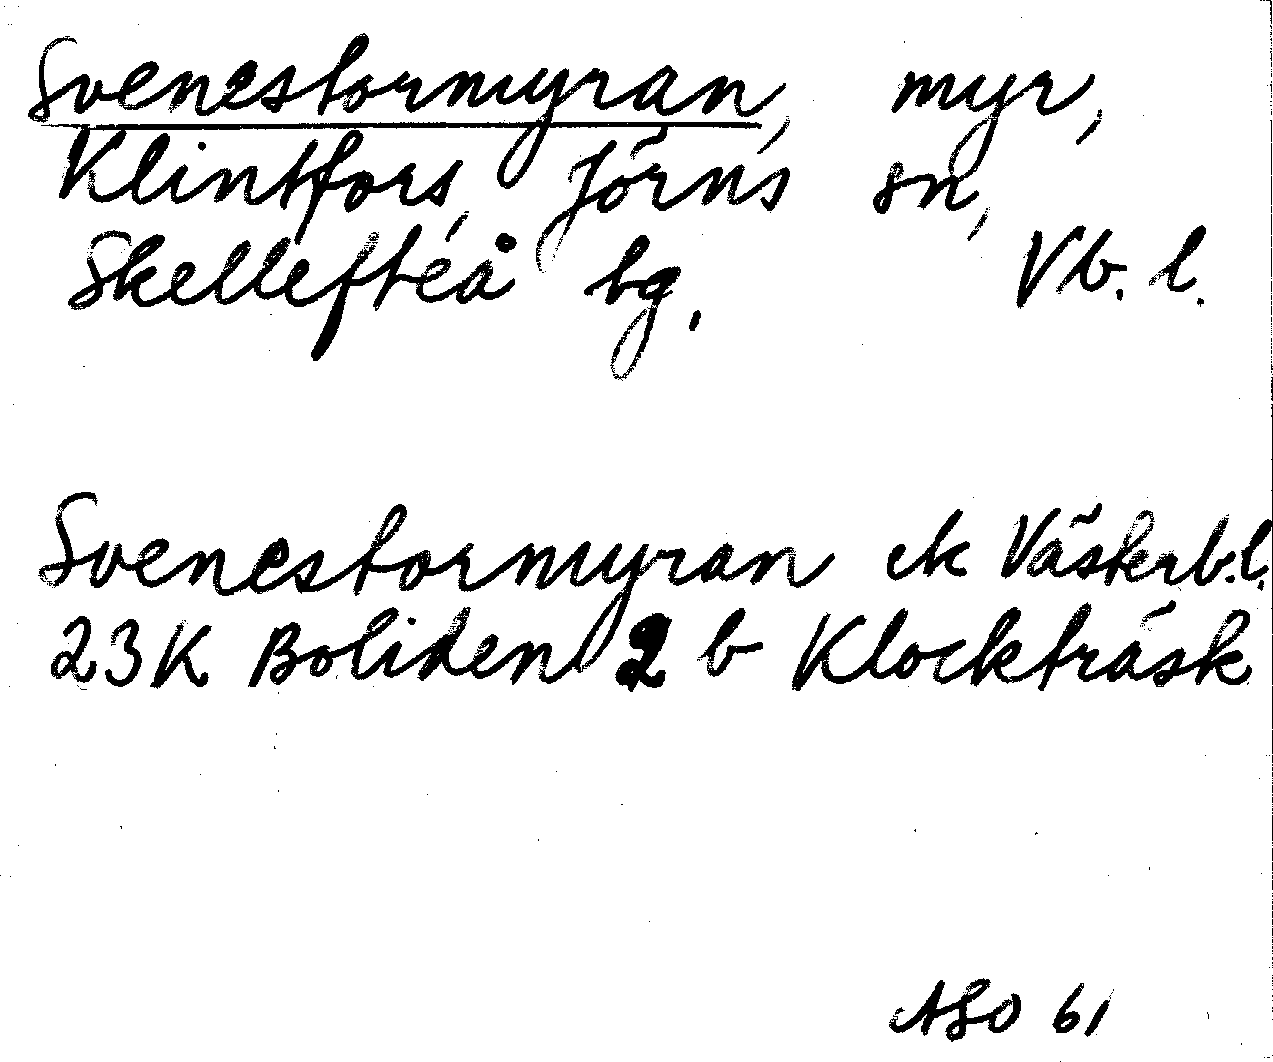 Svenstormyran, myr,
Klintfors, Jörns sn,
Skellefteå tg. Vb. l.
Svenstormyran ek Västerb.l.
23K Boliden 2 b Klockträsk
ASO 61